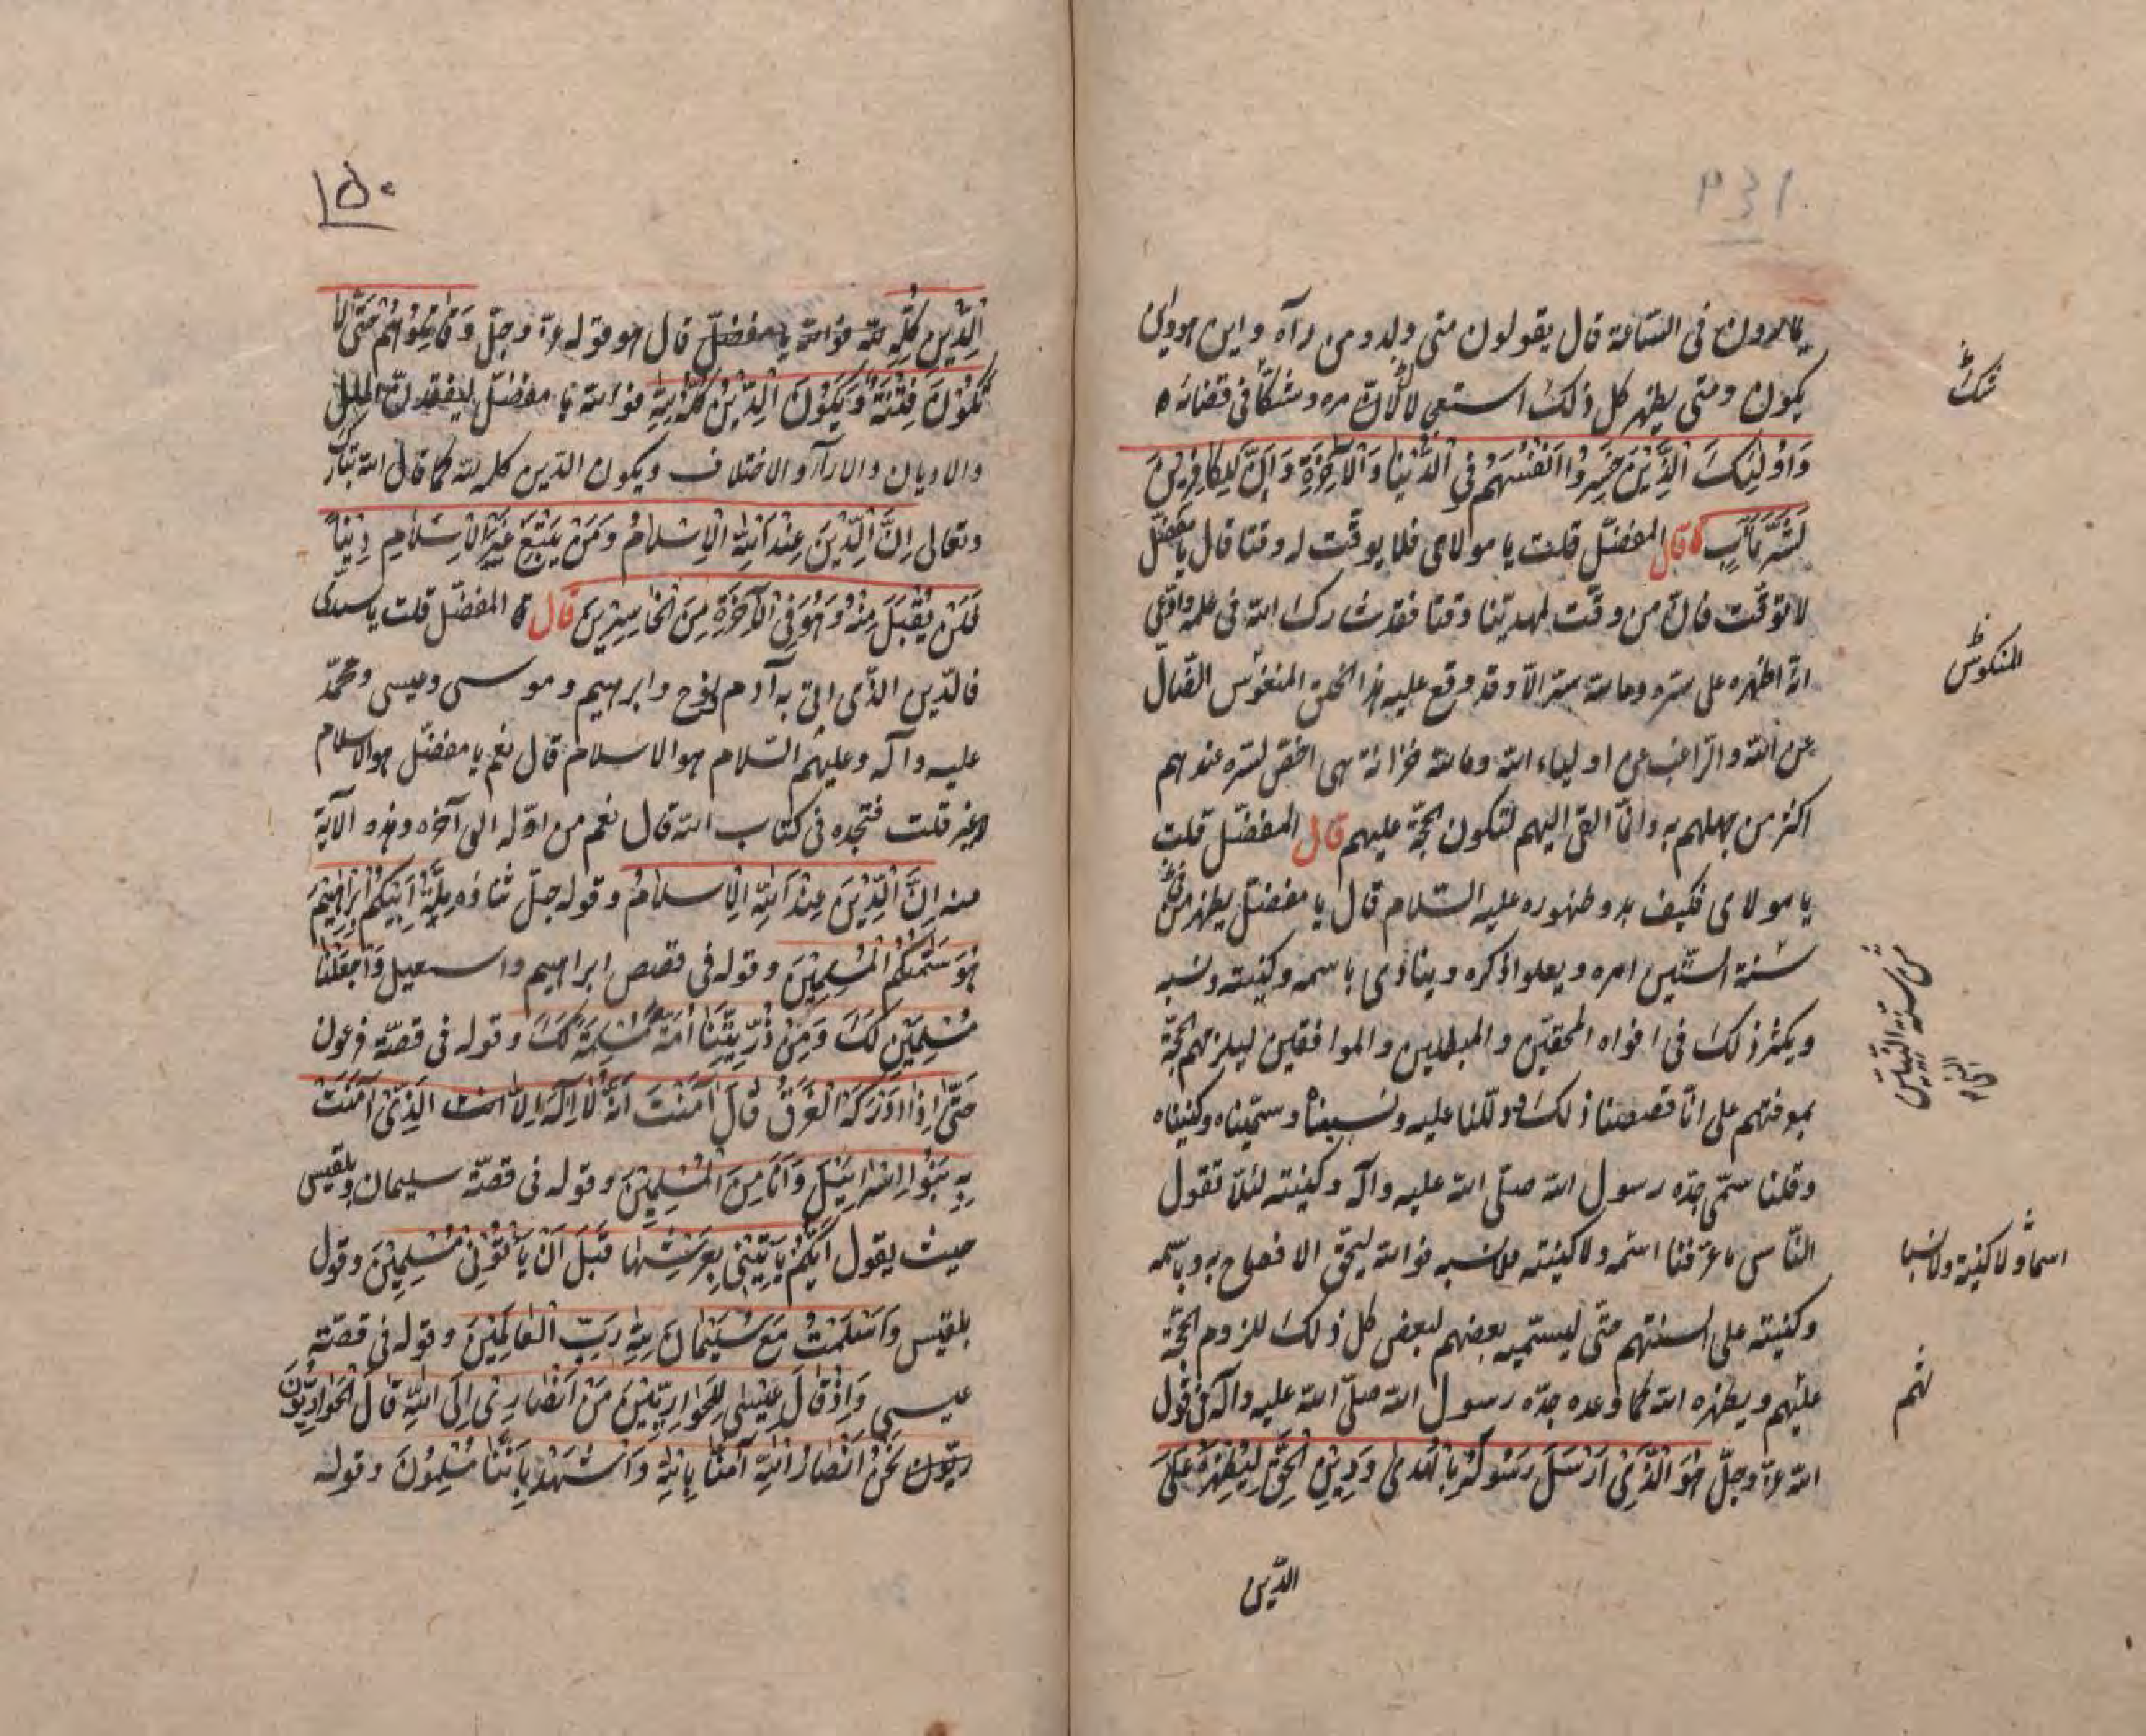 ۱۴۹
يمارون فى الساعة قال يقولون متى ولد ومن رآه واين هو واين
يكون ومتى يظهر كل ذلك استعجالا لامره وشكّا فى قضائه
شكّا
وَاُولٰئِكَ الَّذِيْنَ خَسِرُوا اَنْفُسَهُم فِى الدُّنْيَا وَالْآخِرَةِ وَاِنَّ لِلْكَافِرِيْنَ
لَشَرَّ مَآبٍ قال المفضّل قلت يا مولاى فلا يوقّت له وقتا قال يا مفضّل
لا توقّت فانّ من وقّت لمهديّنا وقتا فقد شارك الله فى علمه وادّعى
انّه اظهره على سرّه وما لله سرّ الّا وقد وقع عليه هذا الخلق المنغوس الضّال
المنكوس
عن الله والرّاغب عن اولياء الله وما لله خزانة هى اخصّ لسرّه عندهم
اكثر من جهلهم به وانّما القى اليهم لتكون حجّة عليهم قال المفضّل قلت
يا مولاى فكيف بدو ظهوره عليه السّلام قال يا مفضّل يظهر من
سنة السّتّين امره ويعلوا ذكره وينادى باسمه وكنيته ونسبه
ويكثر ذلك فى افواه المحقّين والمبطلين والموافقين ليلزمهم الحجّة
بمعرفتهم على انّا قصصنا ذلك ودلّلنا عليه ونسبناه وسمّيناه وكنيناه
وقلنا سمّى جدّه رسول الله صلّى الله عليه وآله وكنيته لئلّا تقول
النّاس ما عرفنا اسمه ولا كنيته ولا نسبه فوالله ليحقّ الافصاح به وباسمه
اسما ولا كنية ولا نسبا
وكنيته على السنتهم حتّى ليسمّيه بعضهم لبعض كل ذلك للزوم الحجّة
عليهم ويظهره الله كما وعده جدّه رسول الله صلّى الله عليه وآله فى قول
ثم
الله عزّ وجلّ هُوَ الَّذِىْ اَرْسَلَ رَسُوْلَهُ بِالْهُدٰى وَدِيْنِ الْحَقِّ لِيُظْهِرَهُ عَلَى
الدّين
۱۵۰
الدِّيْنِ كُلِّهِ لله فوالله يا مفضّل قال هو قوله عزّ وجلّ وَقَاتِلُوْهُمْ حَتّٰى لَا
تَكُوْنَ فِتْنَةٌ وَيَكُوْنَ الدِّيْنُ كُلُّهُ لِلّٰهِ فوالله يا مفضّل ليفقدنّ الملل
والاديان والارآء والاختلاف ويكون الدّين كله لله كما قال الله تبارك
وتعالى اِنَّ الدِّيْنَ عِنْدَ اللّٰهِ الْاِسْلَامُ وَمَنْ يَبْتَغِ غَيْرَ الْاِسْلَامِ دِيْنًا
فَلَنْ يُقْبَلَ مِنْهُ وَهُوَ فِى الْآخِرَةِ مِنَ الْخَاسِرِيْنَ قال المفضّل قلت يا سيدى
فالدّين الذّى اتى به آدم ونوح وابرهيم وموسى وعيسى ومحمّد
عليه وآله وعليهم السّلام هو الاسلام قال نعم يا مفضّل هو الاسلام
لا غير قلت فتجده فى كتاب الله قال نعم من اوّله الى آخره وهذه الآية
منه اِنَّ الدِّيْنَ عِنْدَ اللّٰهِ الْاِسْلَامُ وقوله جلّ ثناؤه مِلَّةَ اَبِيْكُمْ اِبْرَاهِيْمَ
هُوَ سَمّٰكُمُ الْمُسْلِمِيْنَ وقوله فى قصص ابراهيم واسمعيل وَاجْعَلْنَا
مُسْلِمَيْنِ لَكَ وَمِنْ ذُرِّيَّتِنَا اُمَّةً مُسْلِمَةً لَكَ وقوله فى قصّة فرعون
حَتّٰى اِذَا اَدْرَكَهُ الْغَرَقُ قَالَ آمَنْتُ اَنَّهُ لَا اِلٰهَ اِلَّا الَّذِىْ آمَنَتْ
بِهِ بَنُوْا اِسْرَائِيْلَ وَاَنَا مِنَ الْمُسْلِمِيْنَ وقوله فى قصّة سليمان وبلقيس
حيث يقول اَيُّكُمْ يَأْتِيْنِى بِعَرْشِهَا قَبْلَ اَنْ يَأْتُوْنِى مُسْلِمِيْنَ وقول
بلقيس وَاَسْلَمْتُ مَعَ سُلَيْمَانَ لِلّٰهِ رَبِّ الْعَالَمِيْنَ وقوله فى قصّة
عيسى وَاِذْ قَالَ عِيْسٰى لِلْحَوَارِيِّيْنَ مَنْ اَنْصَارِىْ اِلَى اللّٰهِ قَالَ الْحَوَارِيُّوْنَ
نَحْنُ اَنْصَارُ اللّٰهِ آمَنَّا بِاللّٰهِ وَاشْهَدْ بِاَنَّنَا مُسْلِمُوْنَ وقوله